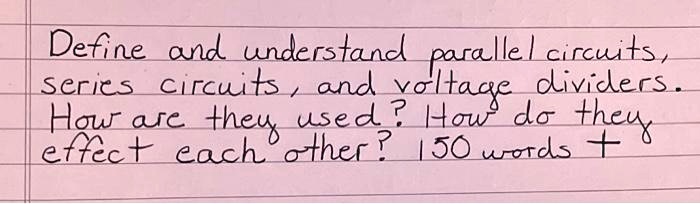 Define and understand parallel circuits,
series circuits, and voltage dividers.
How are they used? How do they
effect each other? 150 words +